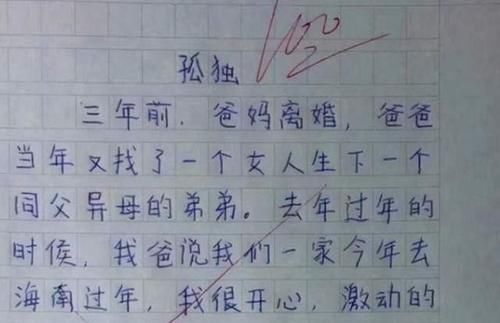 100
孤独
三年前,爸妈离婚,爸爸
当年又找了一个女人生下一个
同父异母的弟弟。去年过年的
时候,我爸说我们一家今年去
海南过年,我很开心,激动的